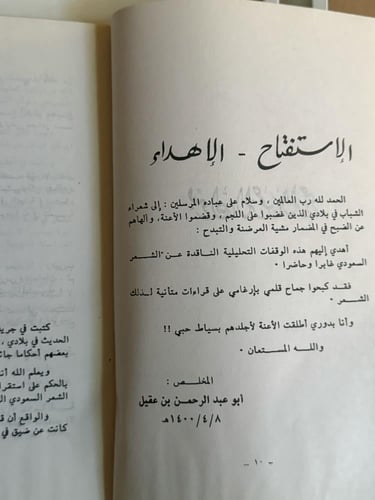 الاستفتاح - الاهداء
الحمد لله رب العالمين ، وسلام على عباده المرسلين : إلى شعراء
الشباب في بلادي الذين غضبوا على اللجم ، وقضموا الأعنة ، وألهاهم
عن الضبح في المضمار مشية العرضنة والتبدح :
أهدي إليهم هذه الوقفات التحليلية الناقدة عن الشعر
السعودي غابرا وحاضرا .
فقد كبحوا جماح قلمي بإرغامي على قراءات متأنية لذلك
الشعر .
وأنا بدوري أطلقت الأعنة لأجلدهم بسياط حبي !!
والله المستعان .
المخلص :
أبو عبد الرحمن بن عقيل
١٤٠٠/٤/٨هـ
- ١٠ -
كتبت في جريد
الحديث في بلادي ،
بعضهم أحكاما جائ
ويعلم الله أنـ
بالحكم على استقرا
الشعر السعودي الـ
والواقع أن قـ
كانت عن ضيق في